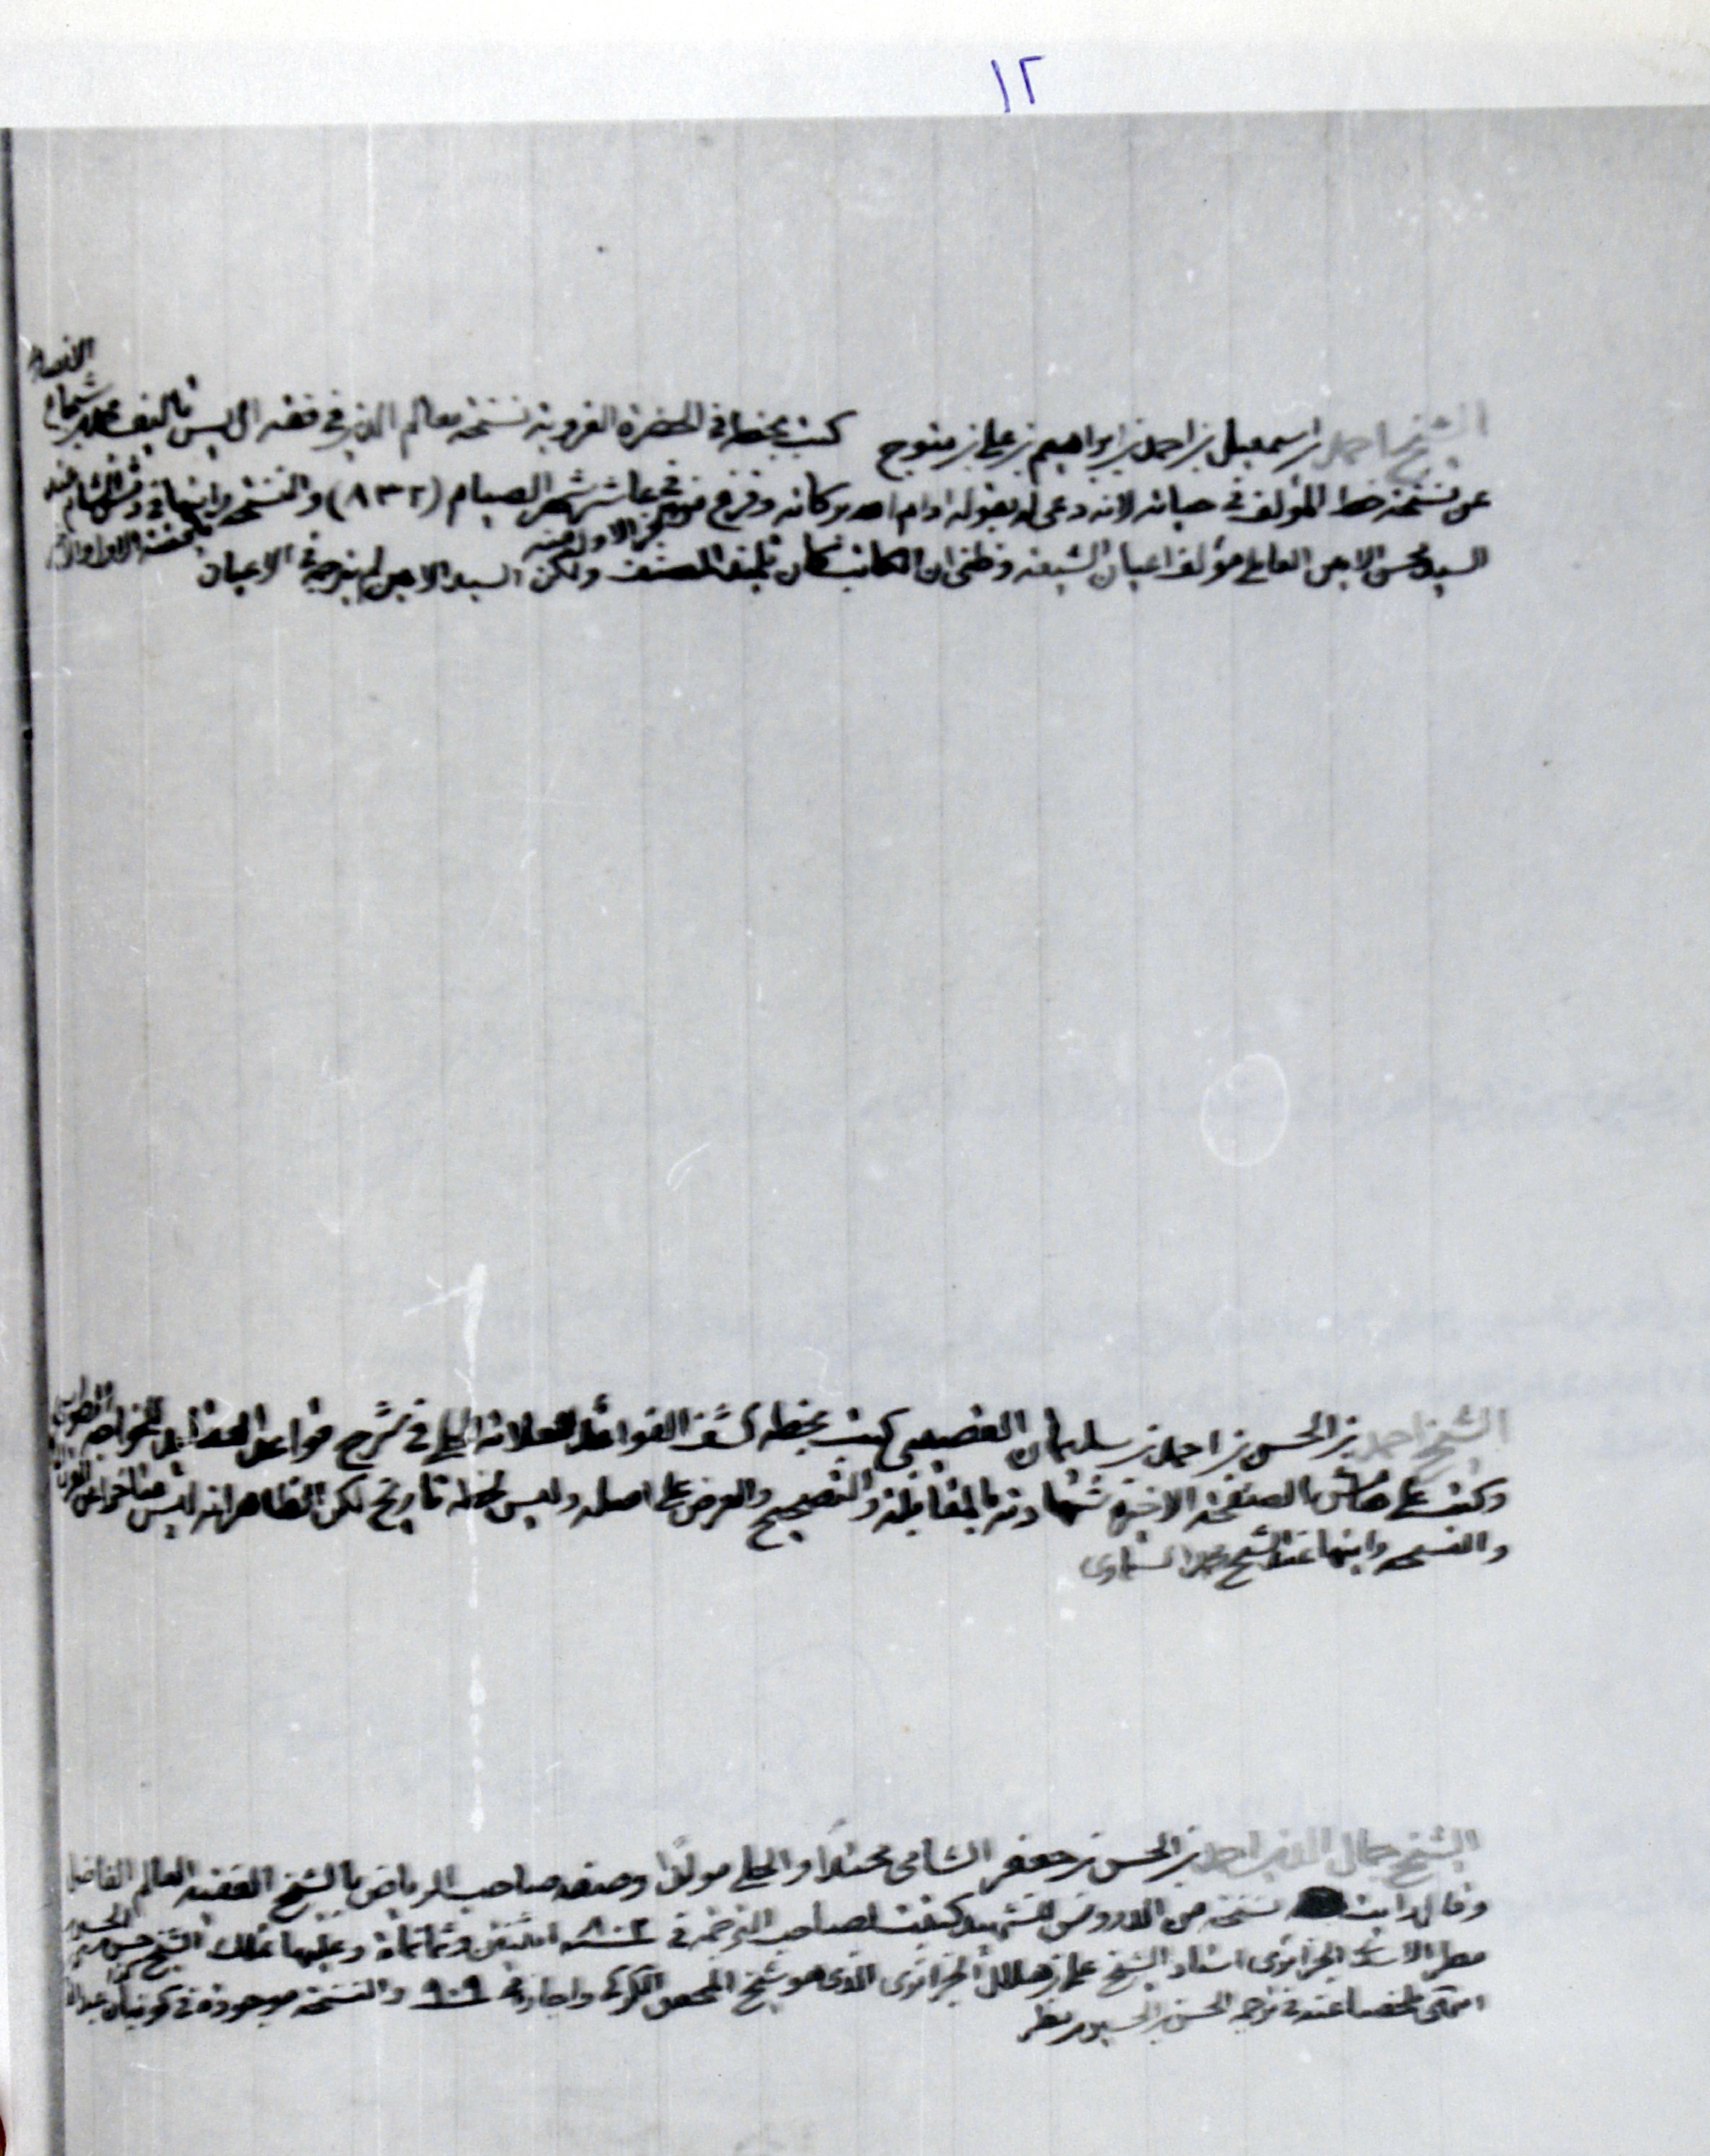 ١٢
الشيخ احمد بن اسمعيل بن احمد بن ابراهيم بن علي بن متوج كتب بخطه في الحضرة الغروية نسخة معالم الدين في فقه ال يس تاليف محمد بن شجاع
عن نسخة خط المؤلف في حياته لانه دعى له بقوله ادام الله بركاته وفرغ في عاشر شهر الصيام (٨٣٢) والنسخة رايتها في دمشق الشام عند
السيد محسن الامين العاملي مؤلف اعيان الشيعة وظني ان الكاتب كان تلميذ المصنف ولكن السيد الامين لم يترجمه في الاعيان
الشيخ احمد بن الحسن بن احمد بن سليمان كتب بخطه كشف الفوائد للعلامة الحلي في شرح قواعد العقايد للخواجه
وكتب على هامش الصفحة الاخيرة شهادته بالمقابلة والتصحيح والعرض على اصله وليس لخطه تاريخ لكن الظاهر انه ليس متاخرا عن
والنسخه رايتها عند الشيخ محمد السماوى
الشيخ جمال الدين احمد بن الحسن بن جعفر الشامى محتدا والحلي مولدا وصفه صاحب الرياض بالشيخ الفقيه العالم الفاضل
وقال رايت نسخة من الدروس للشهيد كتبت لصاحب الترجمة في ٨٠٢ اثنتين وثمانمائة وعليها تملك الشيخ
مطر الجزائرى استاد الشيخ علي بن هلال الجزائرى الذى هو شيخ المحقق الكركي واجازته ٩٠٩ والنسخة موجودة في
الحسن بن الحسين بن مطر